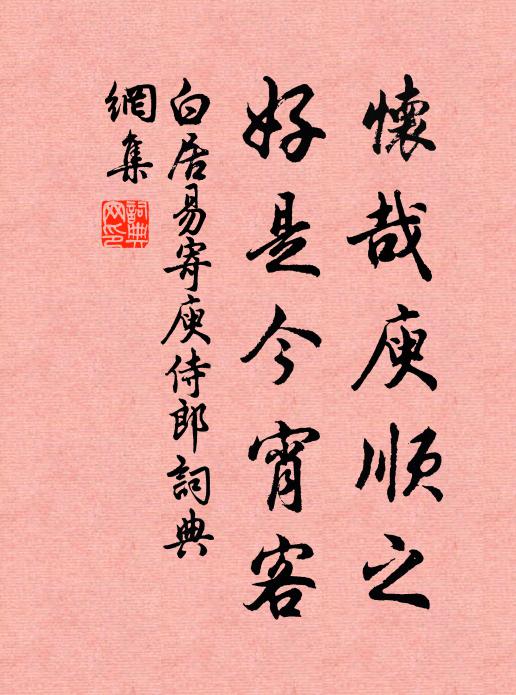 懷哉庾順之
好是今宵客
白居易寄庾侍郎詞典
網集
詞典網印